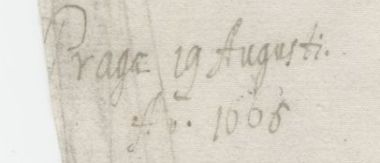 Pragæ 19 Augusti.
1665